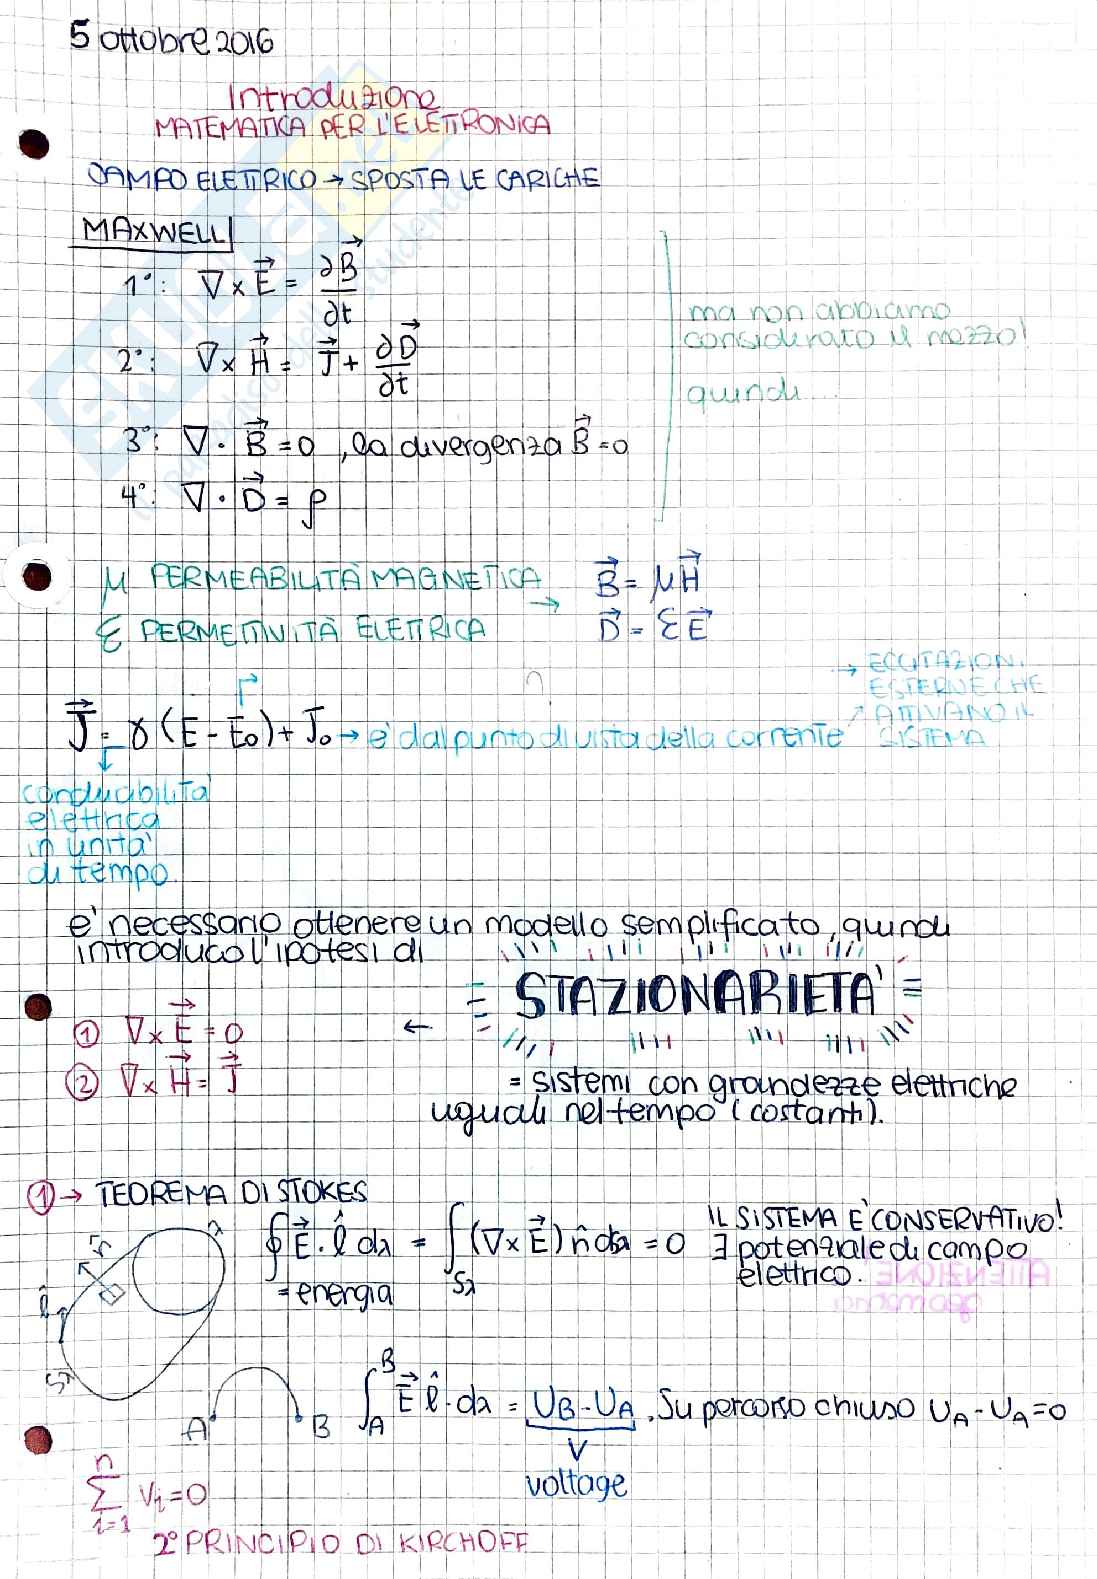 5 ottobre 2016
Introduzione
MATEMATICA PER L'ELETTRONICA
CAMPO ELETTRICO → SPOSTA LE CARICHE
MAXWELL
1°: ∇ × E⃗ = ∂B⃗/∂t
2°: ∇ × H⃗ = J⃗ + ∂D⃗/∂t
3°: ∇ · B⃗ = 0, la divergenza B⃗ = 0
4°: ∇ · D⃗ = ρ
ma non abbiamo
considerato il mezzo!
quindi...
μ PERMEABILITÀ MAGNETICA → B⃗ = μH⃗
ε PERMETTIVITÀ ELETTRICA D⃗ = εE⃗
→ ECCITAZIONI
ESTERNE CHE
ATTIVANO IL
SISTEMA
J⃗ = γ (E - E₀) + J₀ → è dal punto di vista della corrente
conducibilità
elettrica
in unità
di tempo
è necessario ottenere un modello semplificato, quindi
introduco l'ipotesi di
= STAZIONARIETÀ =
① ∇ × E⃗ = 0 ←
② ∇ × H⃗ = J⃗
= sistemi con grandezze elettriche
uguali nel tempo (costanti).
① → TEOREMA DI STOKES
∮ E⃗ · l̂ dλ = ∫Sλ (∇ × E⃗) n̂ ds = 0
= energia
IL SISTEMA È CONSERVATIVO!
∃ potenziale di campo
elettrico.
λ
n̂
l̂
Sλ
A B
∫_A^B E⃗ l̂ · dλ = U_B - U_A. Su percorso chiuso U_A - U_A = 0
V
voltage
∑_{i=1}^{n} v_i = 0
2° PRINCIPIO DI KIRCHOFF